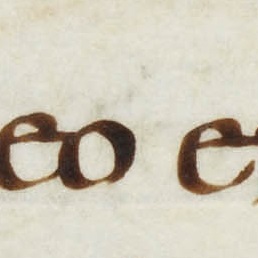 eo e